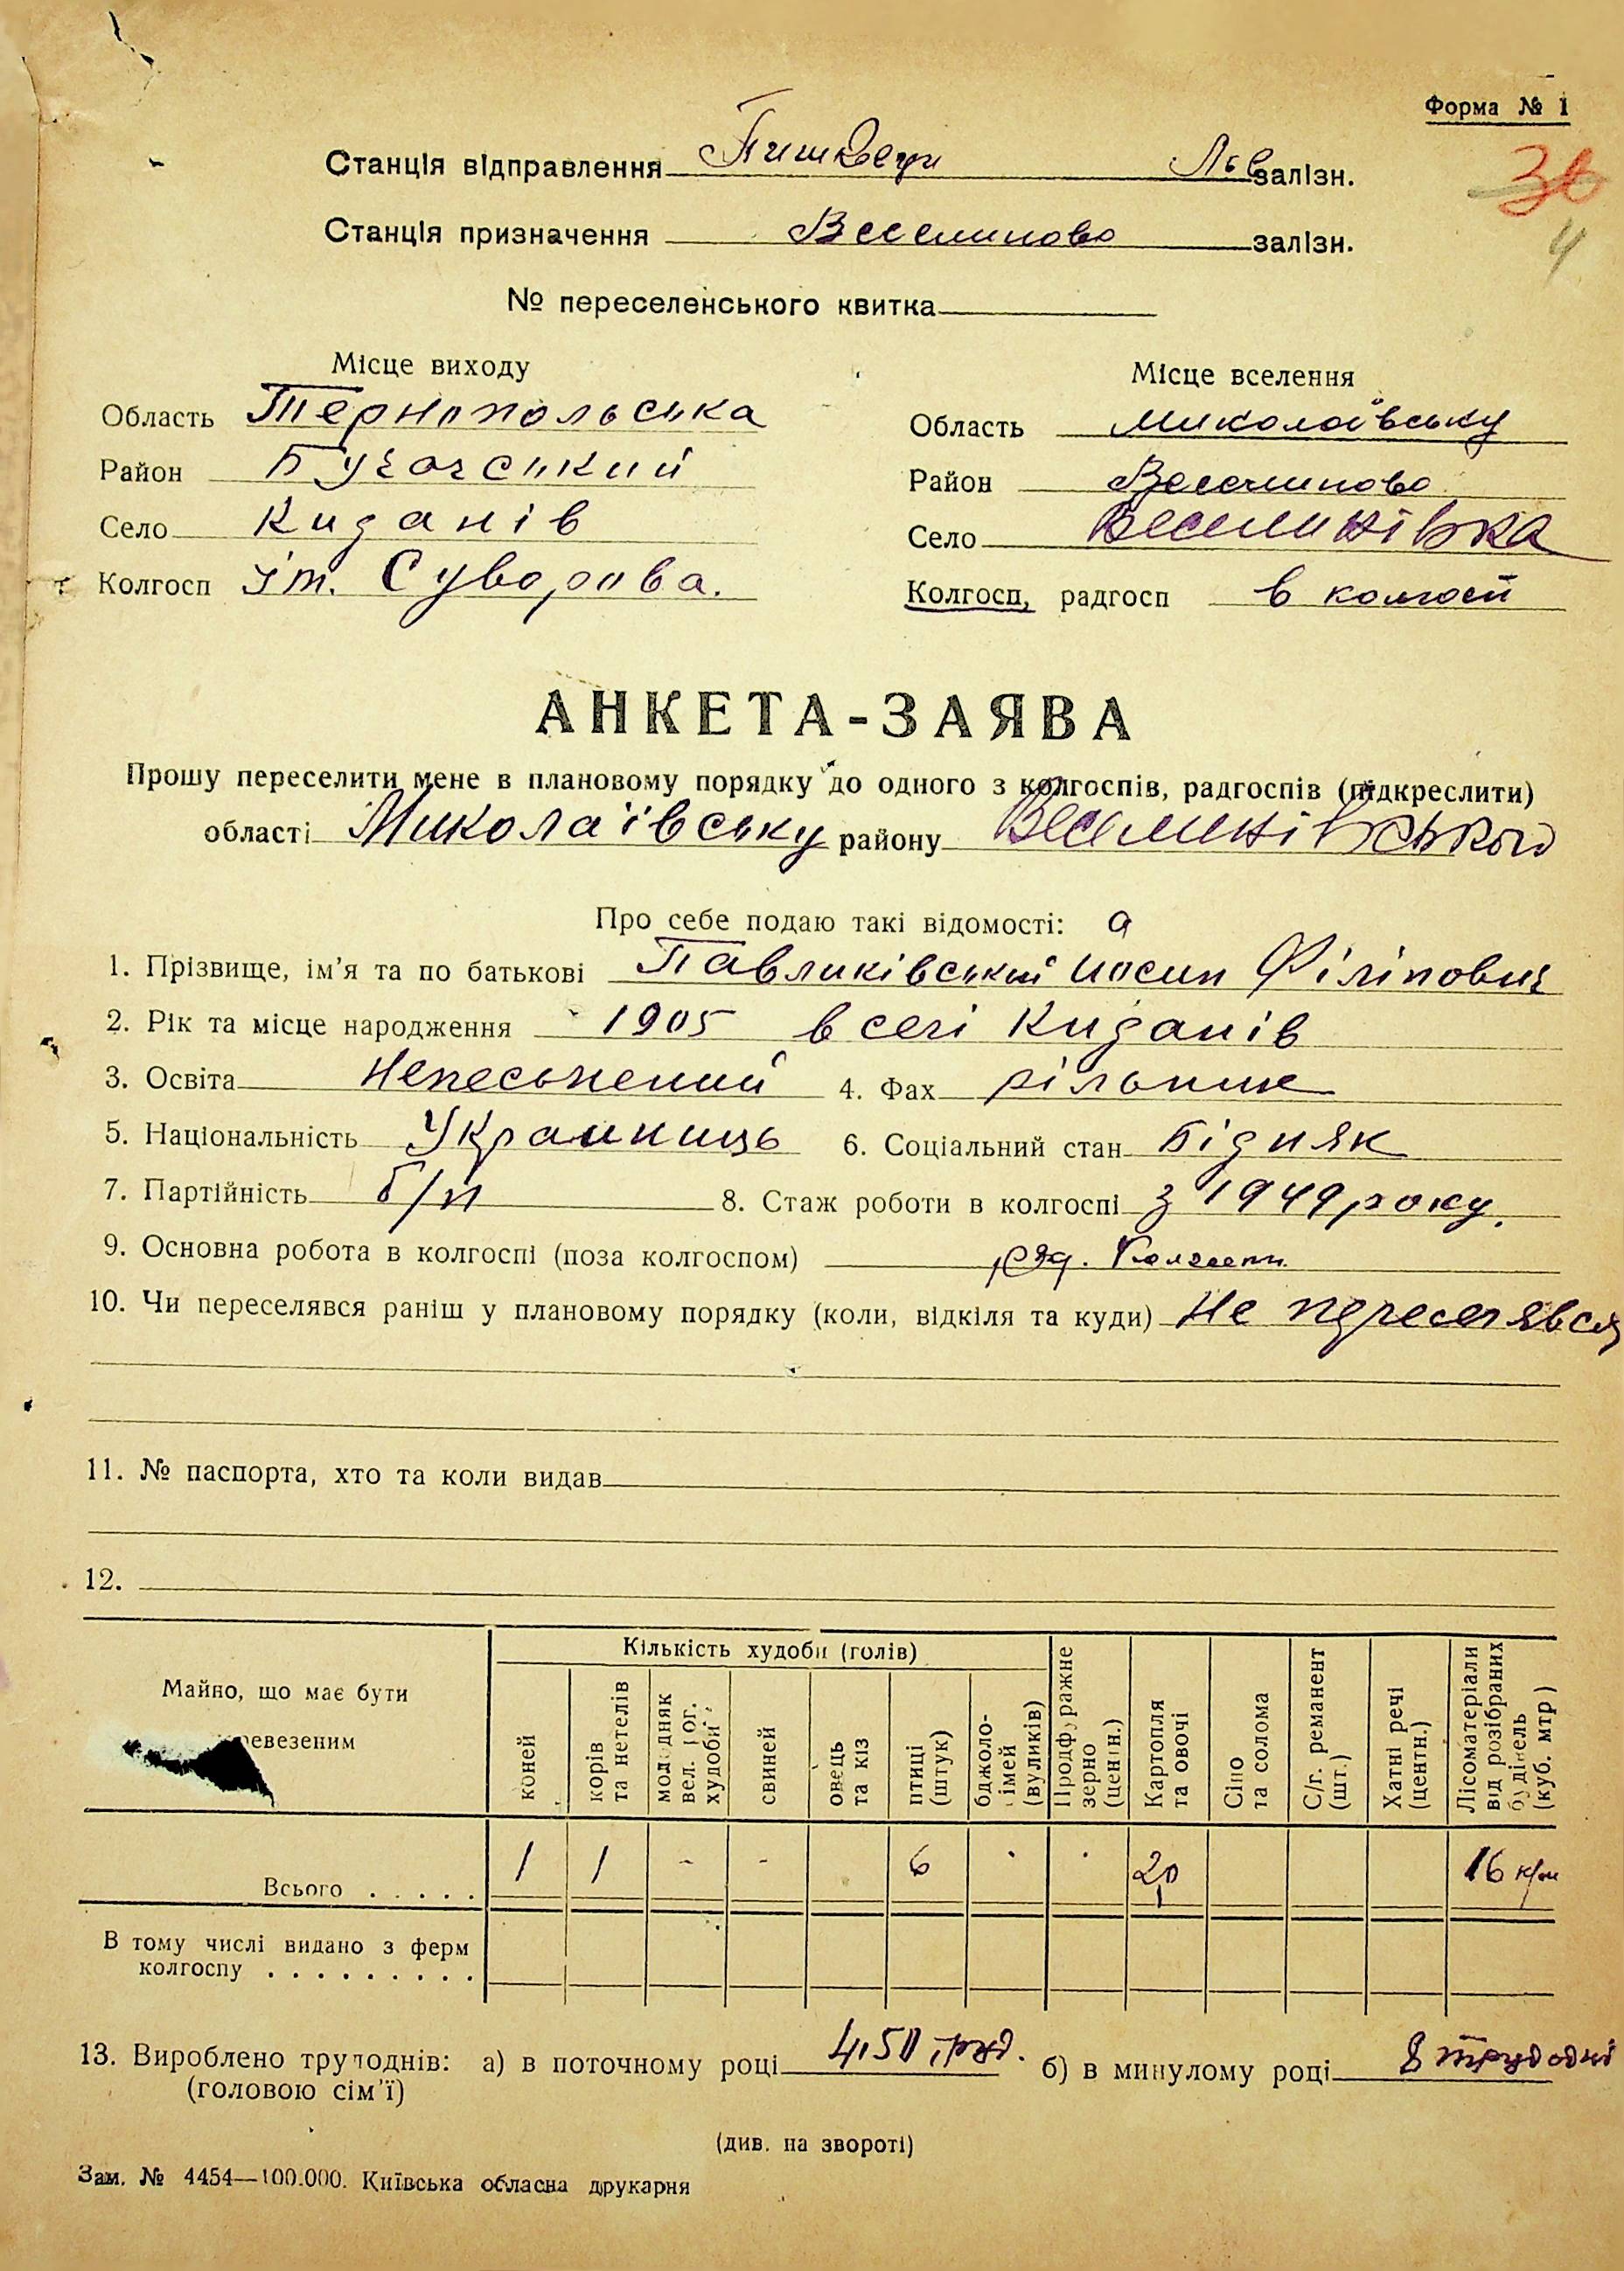 Форма № 1
Станція відправлення Пишківці Льв залізн.
30
Станція призначення Веселиново залізн.
4
№ переселенського квитка
Місце виходу
Місце вселення
Область Тернопольська
Область Миколаївську
Район Бучачський
Район Веселиново
Село Киданів
Село Веселинівка
Колгосп ім. Суворова.
Колгосп, радгосп в колгосп
АНКЕТА-ЗАЯВА
Прошу переселити мене в плановому порядку до одного з колгоспів, радгоспів (підкреслити)
області Миколаївську району Веселинівського
Про себе подаю такі відомості:
1. Прізвище, ім'я та по батькові Павликівський Иосип Філіпович
2. Рік та місце народження 1905 в селі Киданів
3. Освіта 4. Фах рільник
5. Національність Украинць 6. Соціальний стан Бідняк
7. Партійність б/п 8. Стаж роботи в колгоспі з 1949 року.
9. Основна робота в колгоспі (поза колгоспом) ряд. Колгоспн.
10. Чи переселявся раніш у плановому порядку (коли, відкіля та куди) Не переселявся
11. № паспорта, хто та коли видав
12.
Майно, що має бути
перевезеним
Кількість худоби (голів)
коней
корів та нетелів
молодняк вел. рог. худоби
свиней
овець та кіз
птиці (штук)
бджоло-сімей (вуликів)
Продфуражне зерно (центн.)
Картопля та овочі
Сіно та солома
С/г. реманент (шт.)
Хатні речі (центн.)
Лісоматеріали від розібраних будинель (куб. мтр)
Всього . . . . . 1 1 - - 6 20 16 к/м
В тому числі видано з ферм
колгоспу . . . . . . . . .
13. Вироблено трудоднів: а) в поточному році 450 труд. б) в минулому році 8 трудодні
(головою сім'ї)
(див. на звороті)
Зам. № 4454—100.000. Київська обласна друкарня